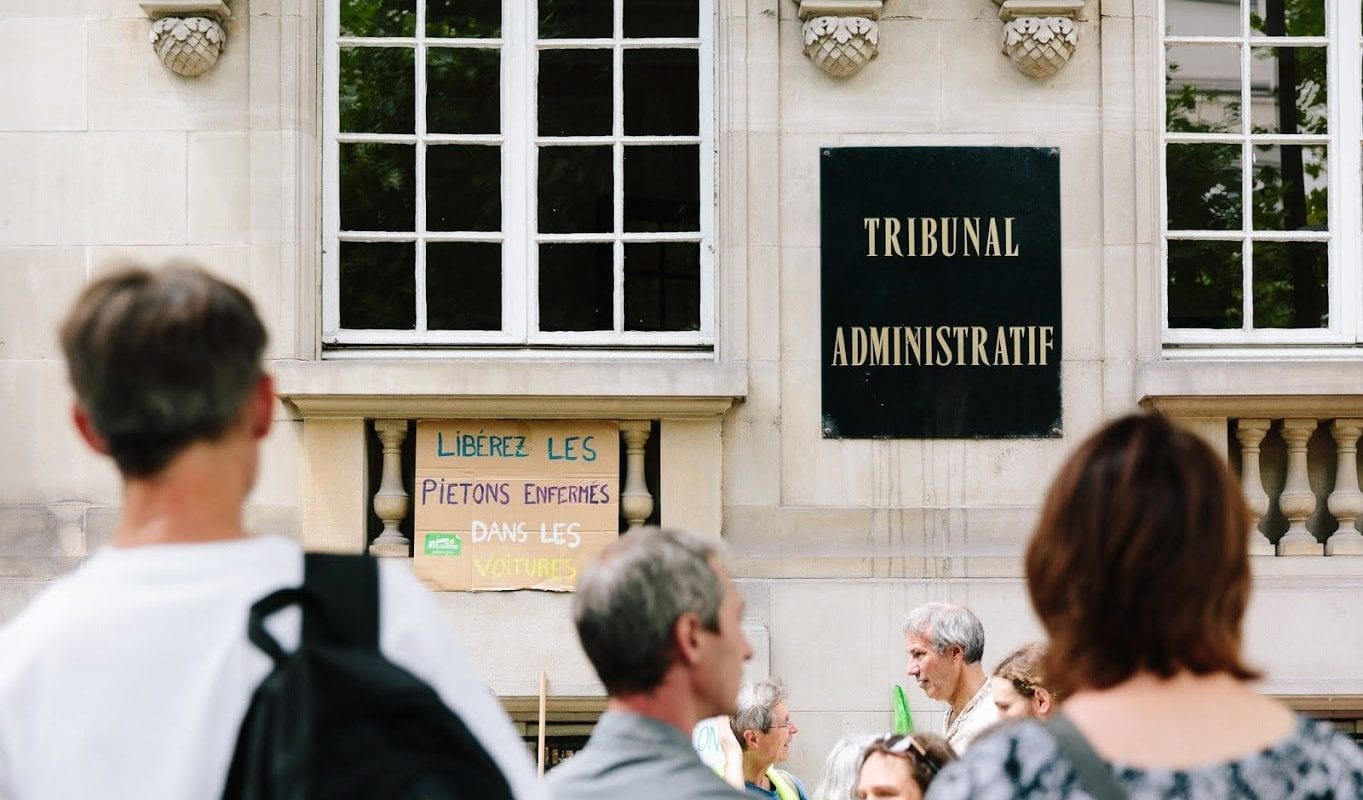 TRIBUNAL
ADMINISTRATIF
LIBÉREZ LES
PIETONS ENFERMÉS
DANS LES
VOITURES
ON